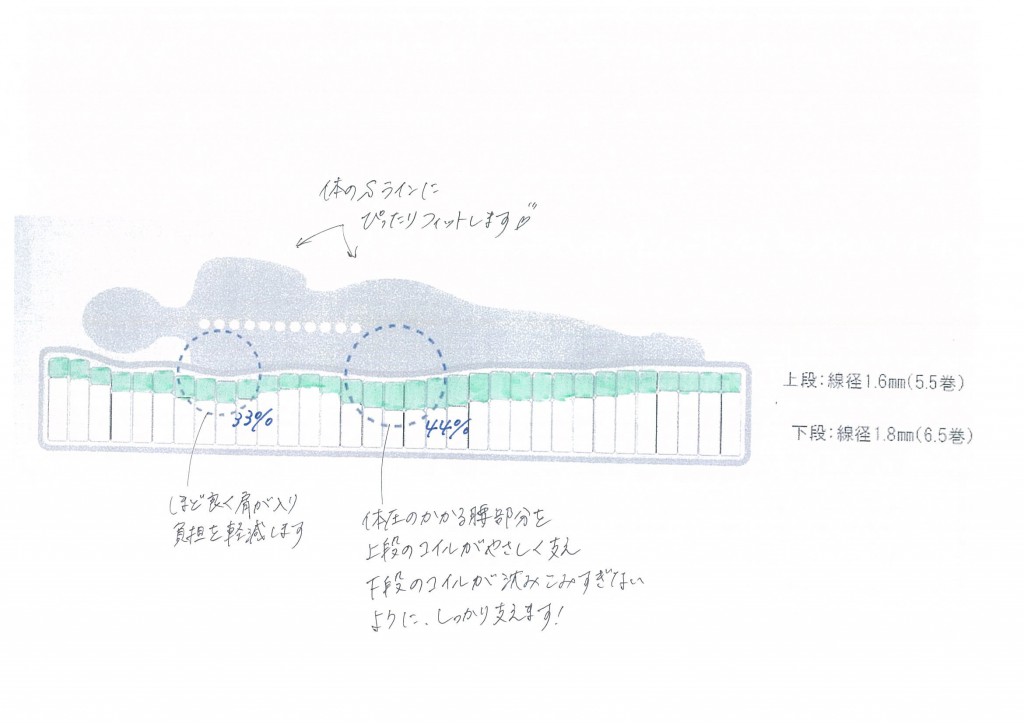 体のSラインに
ぴったりフィットします
上段:線径1.6mm(5.5巻)
下段:線径1.8mm(6.5巻)
33%
44%
ほど良く肩が入り
負担を軽減します
体圧のかかる腰部分を
上段のコイルがやさしく支え
下段のコイルが沈みこみすぎない
ように、しっかり支えます!